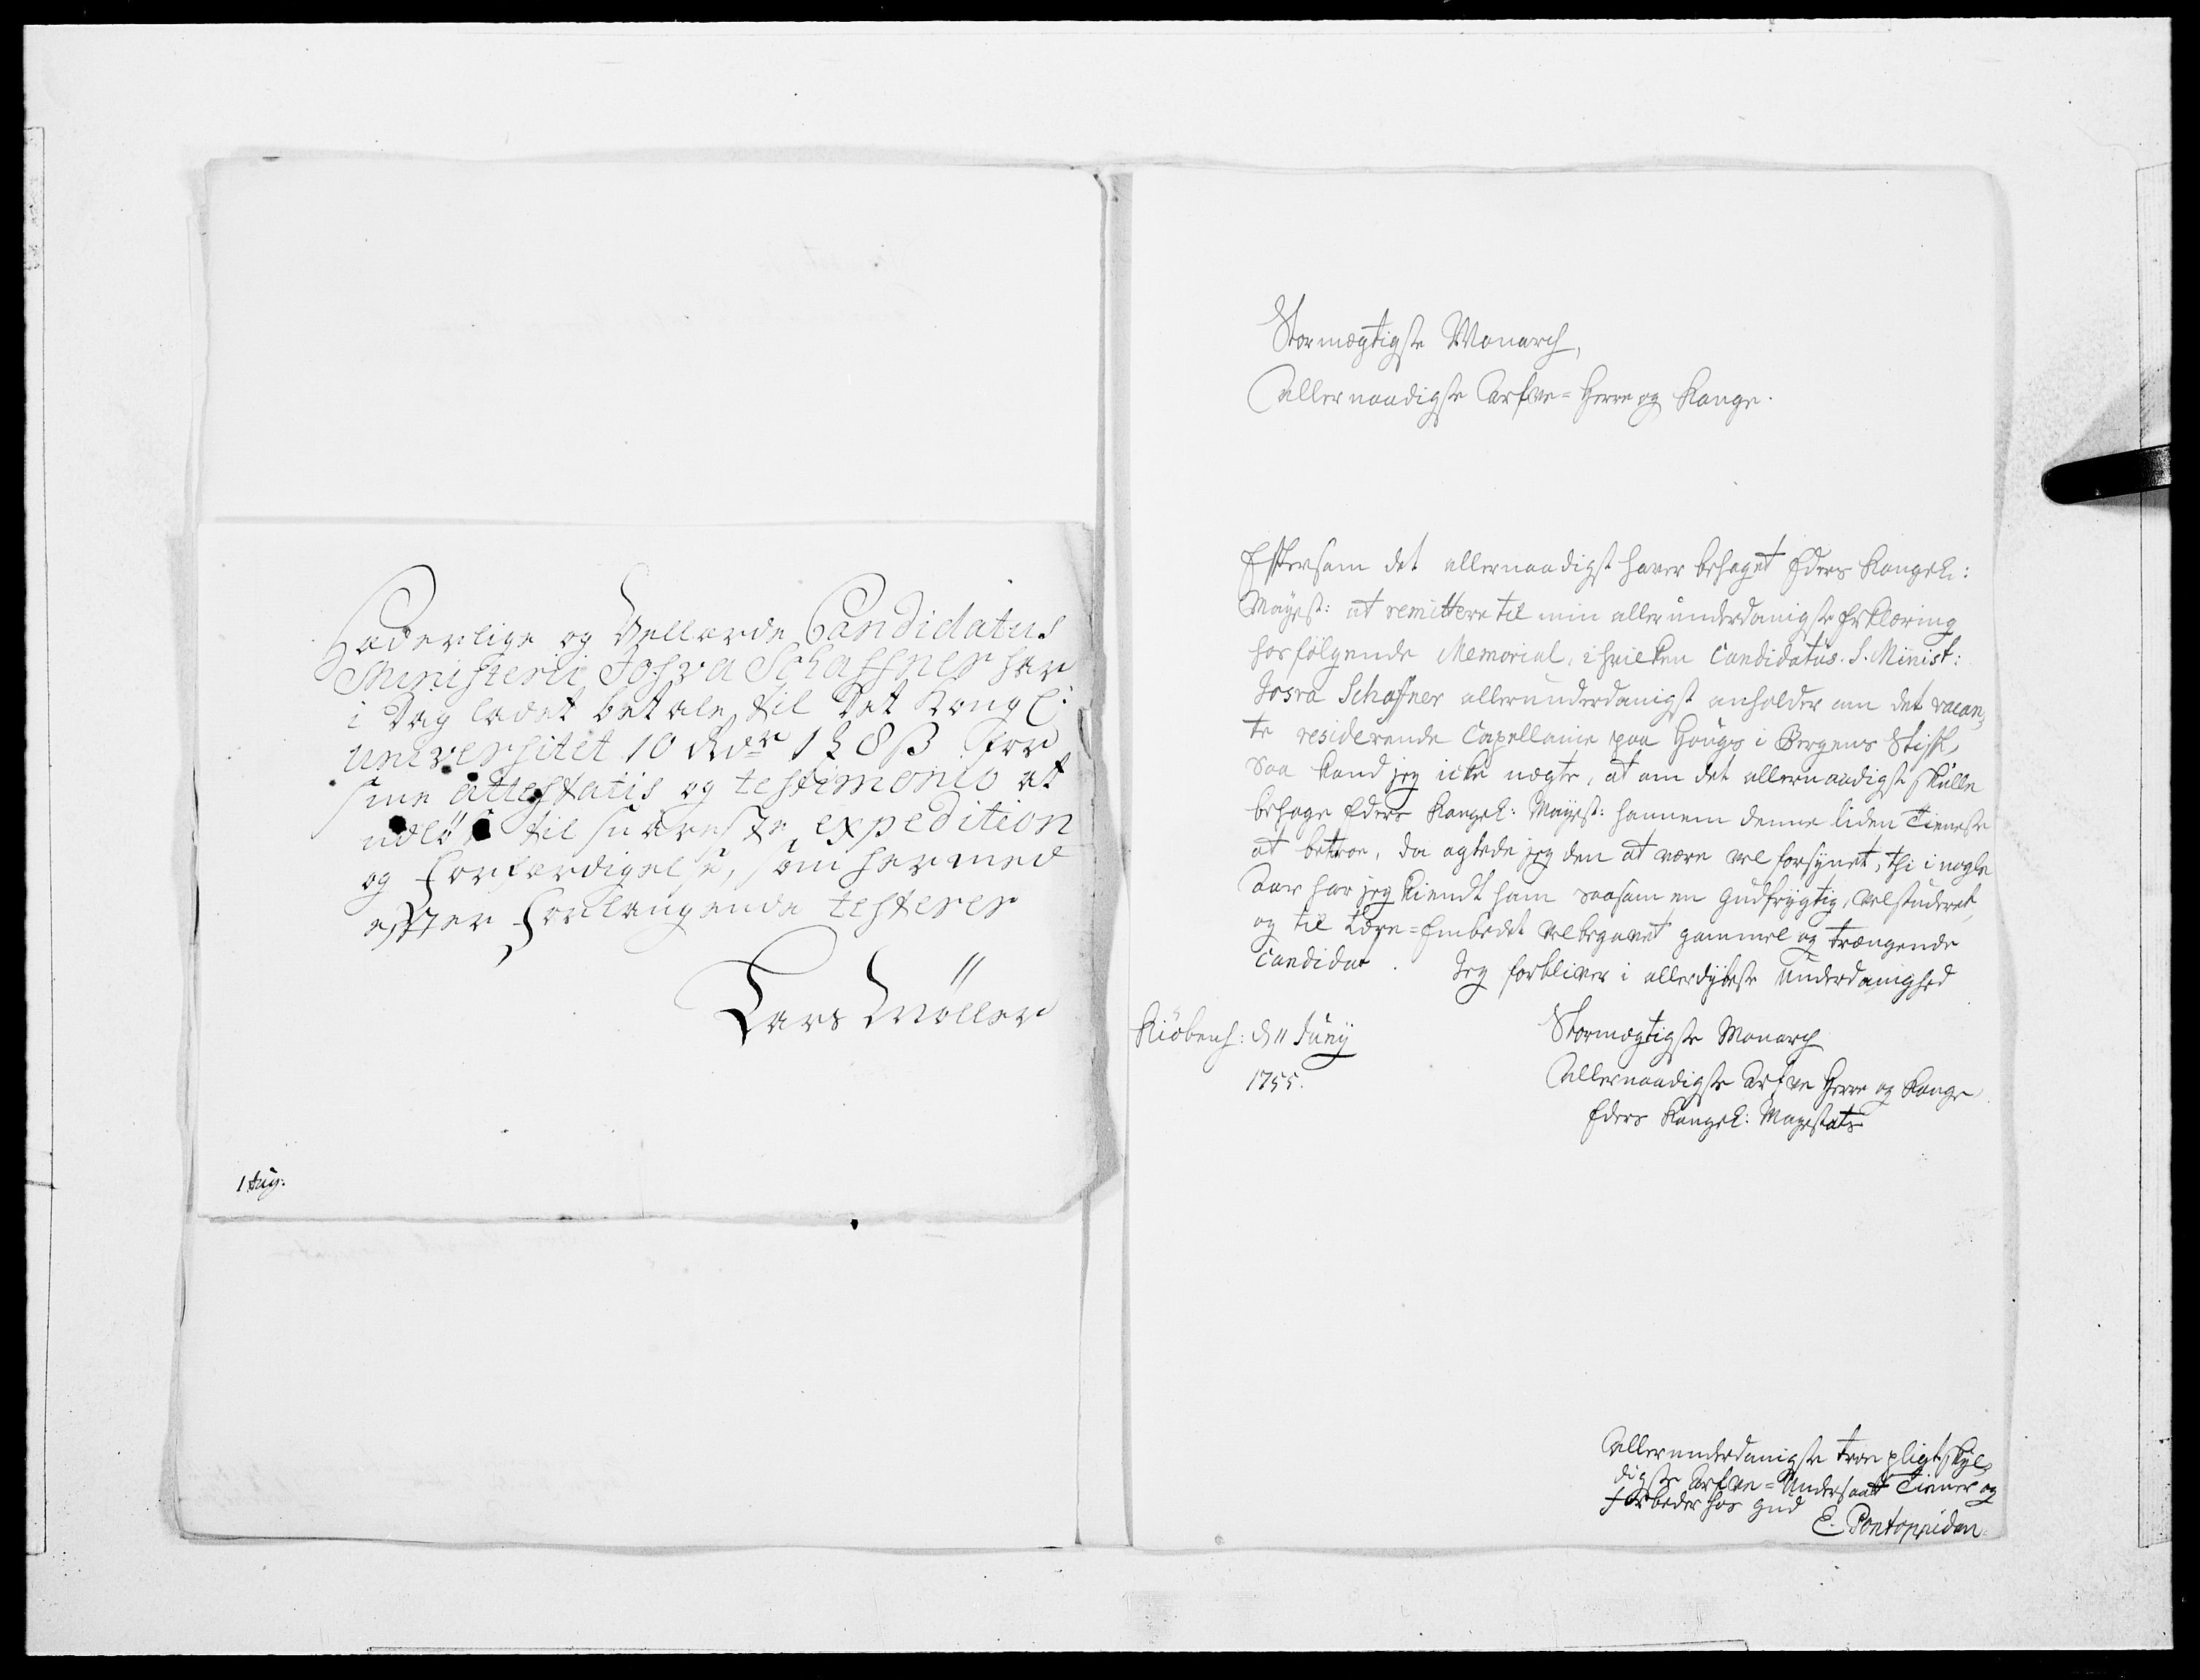 Hæderlige og Vellærde Candidatus
Ministerii Josva Schaffner har
i Dag ladet betale til Det Kongl:
Universitet 10 Rdr 1 ß for
sine attestatis og testimonio at
udlöse til snareste expedition
og forfærdigelse, som hermed
efter forlangende testerer
Lars Möller
1 Aug:
Stormægtigste Monarch,
Allernaadigste Arfve-Herre og Konge.
Eftersom det allernaadigst haver behaget Eders Kongel:
Mayst: at remittere til min allerunderdanigste Erklæring
hosfølgende Memorial, i hvilken Candidatus S. Minist:
Josva Schaffner allerunderdanigst anholder om det vacan-
te residerende Capellanie paa Houge i Bergens Stift,
Saa kand jeg icke nægte, at om det allernaadigst skulle
behage Eders Kongel: Mayst: hannem denne liden Tieneste
at betroe, da agtede jeg den at være vel forsynet, thi i nogle
Aar har jeg kiendt ham saasom en gudfrygtig, velstuderet,
og til Lære-Embedet velbegavet gammel og trængende
Candidat. Jeg forbliver i allerdybeste Underdanighed
Kiöbenh: d 11 Juny
1755.
Stormægtigste Monarch
Allernaadigste Arfve Herre og Konge
Eders Kongel: Mayestæts
Allerunderdanigste troe pligtskyl-
digste Arfve-Undersaatt Tiener og
Forbeder hos Gud
E. Pontoppidan